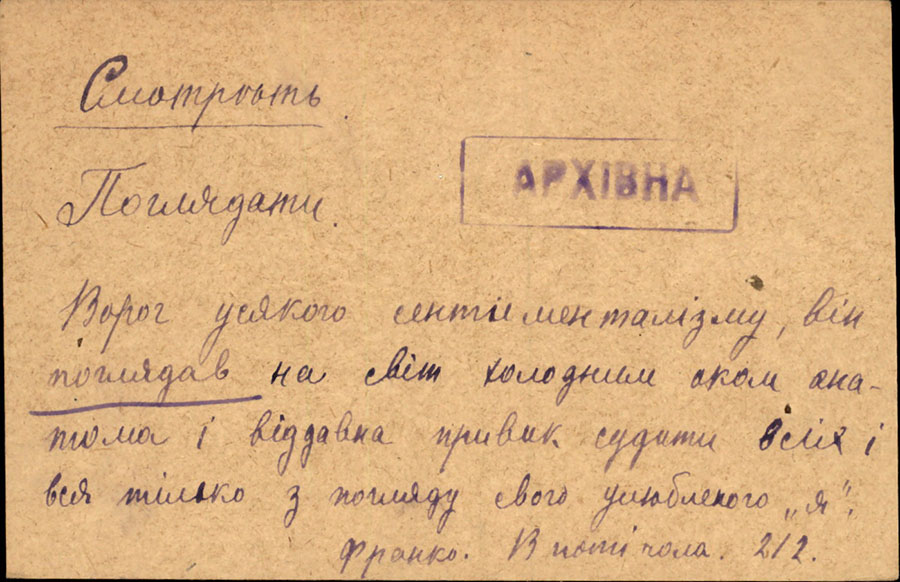 Смотрѣть
АРХІВНА
Поглядати.
Ворог усякого сентименталізму, він
поглядав на світ холодним оком ана-
тома і віддавна привик судити всіх і
вся тілько з погляду свого улюбленого „я".
Франко. В поті чола. 212.